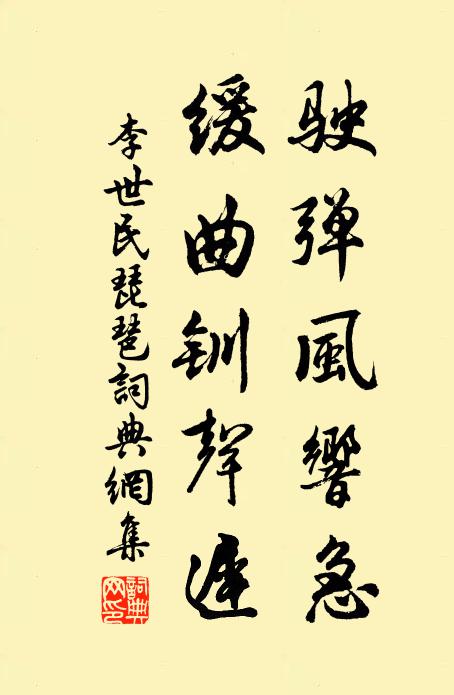 駛弹風響急
緩曲釧聲遲
李世民琵琶詞典網集
詞典網印